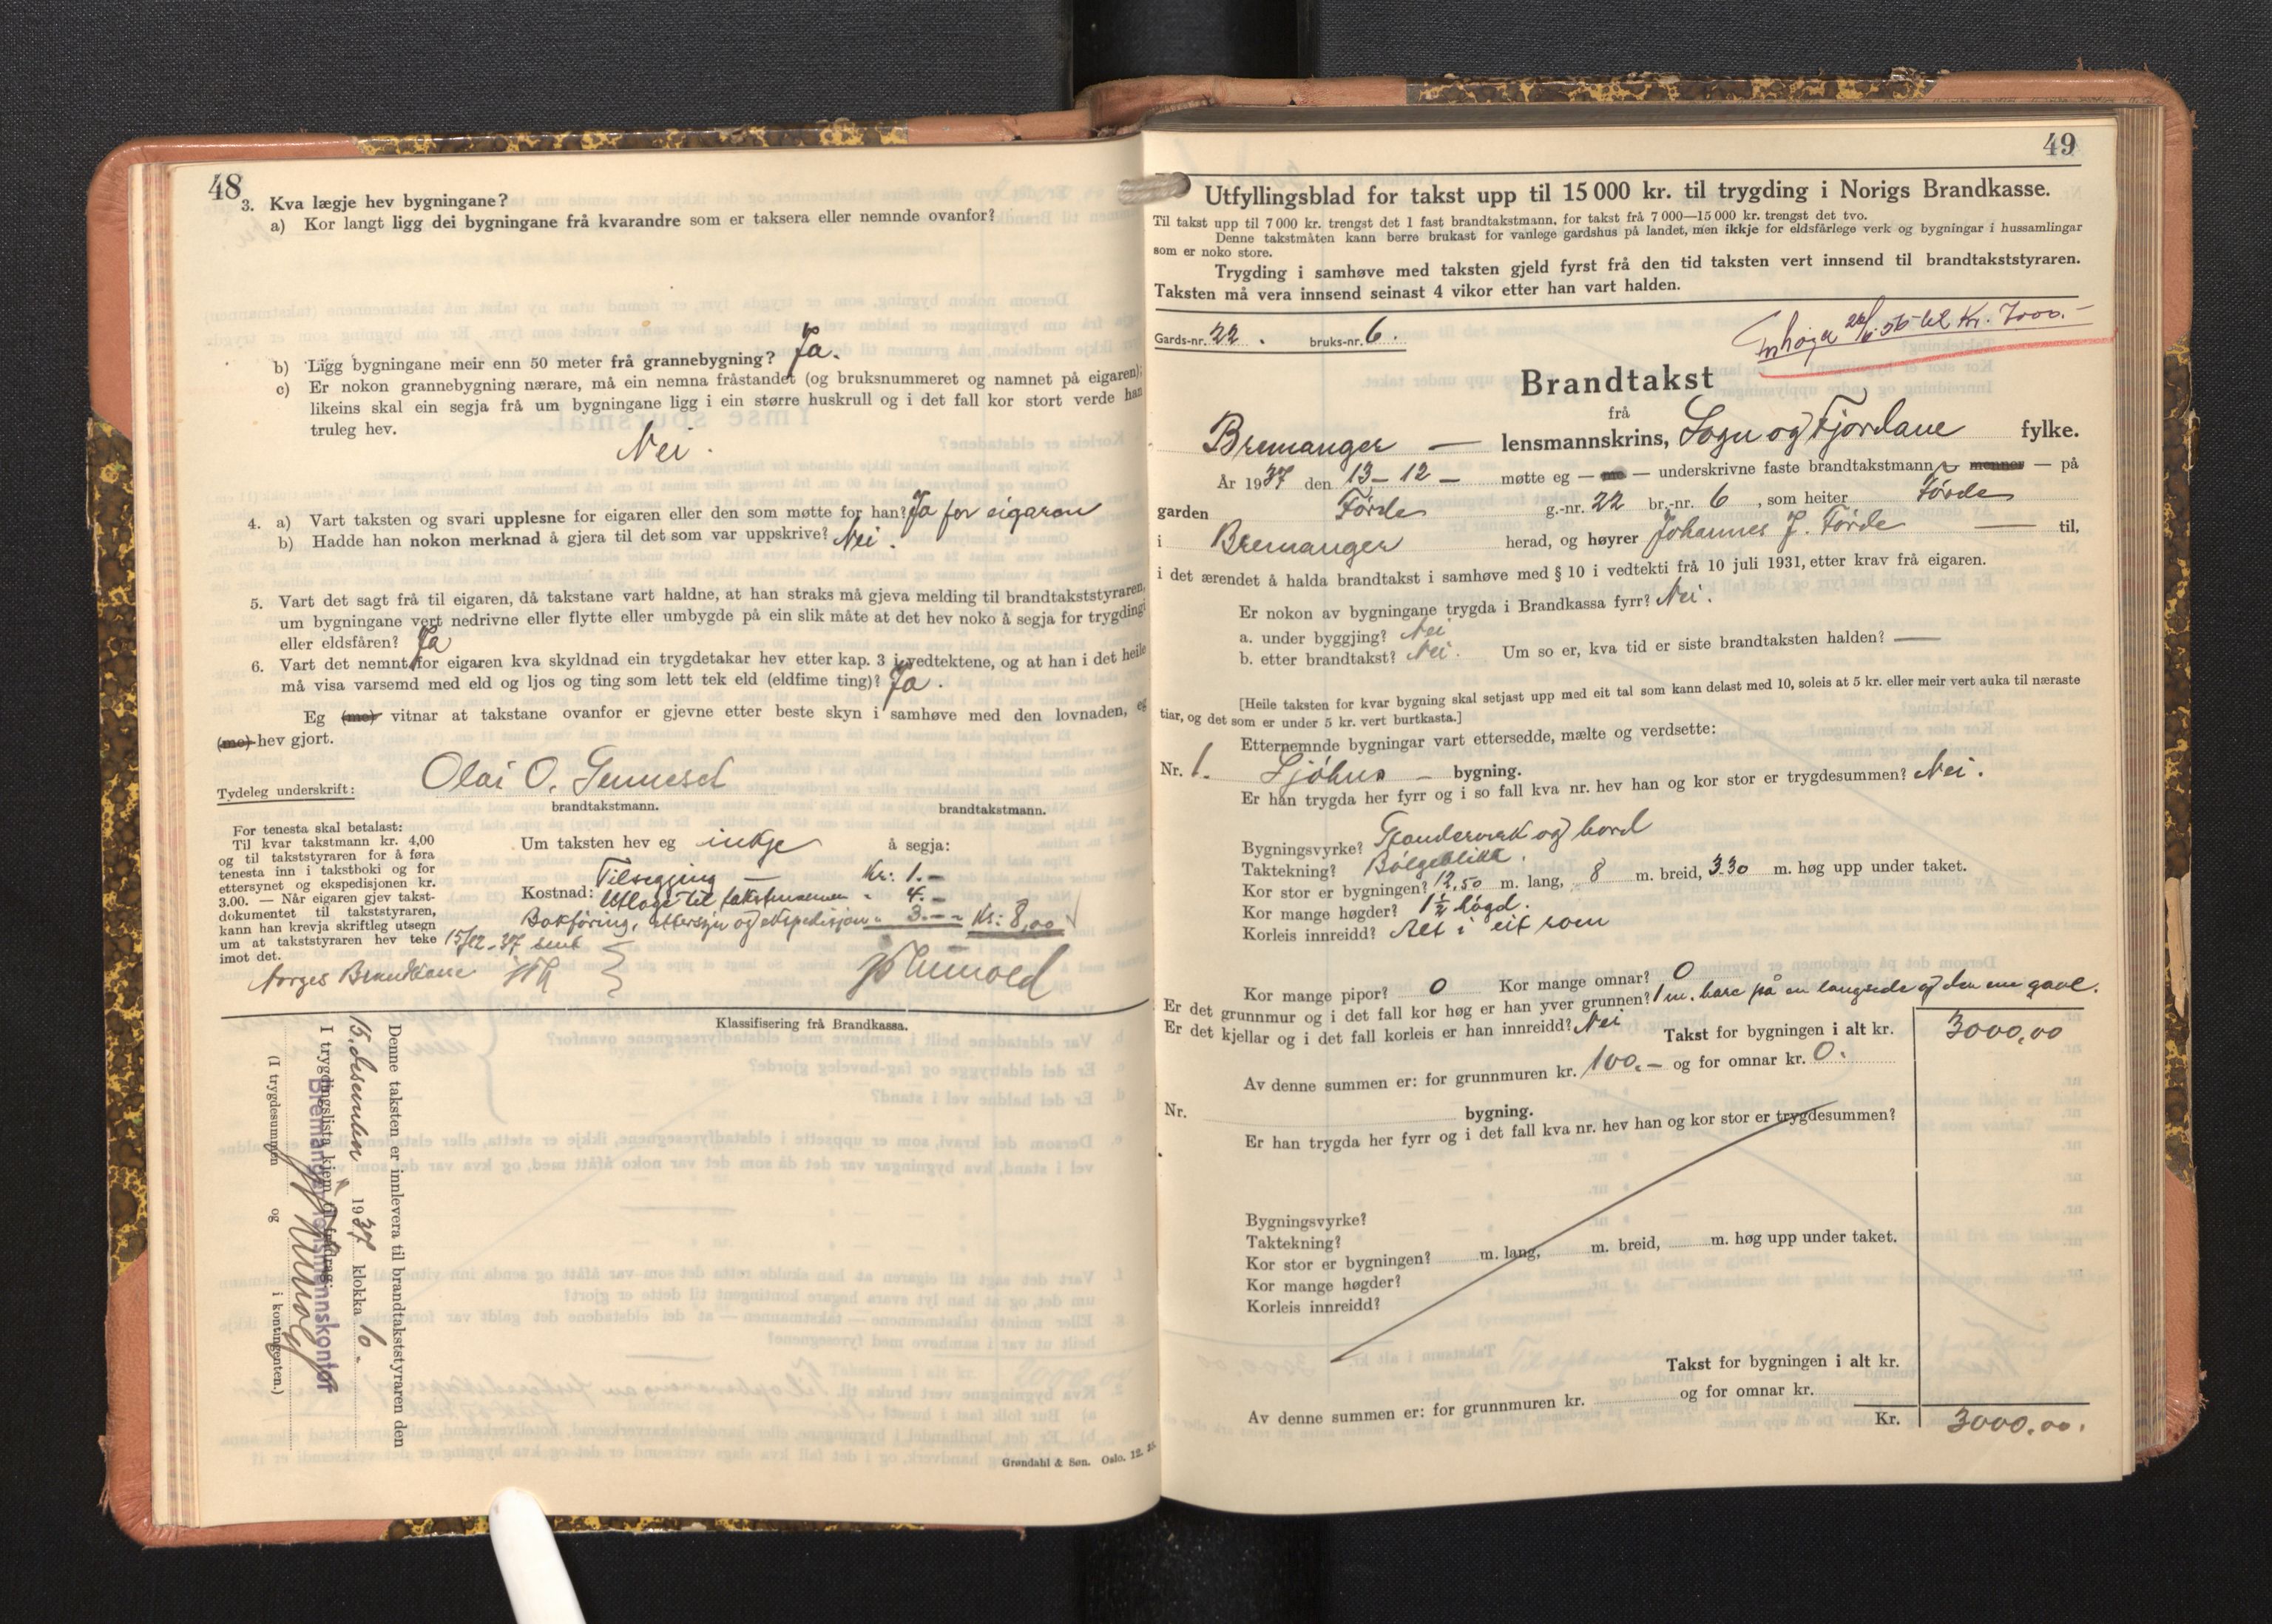 48
3. Kva lægje hev bygningane?
a) Kor langt ligg dei bygningane frå kvarandre som er taksera eller nemnde ovanfor?
b) Ligg bygningane meir enn 50 meter frå grannebygning? Ja.
c) Er nokon grannebygning nærare, må ein nemna fråstandet (og bruksnummeret og namnet på eigaren);
likeins skal ein segja frå um bygningane ligg i ein større huskrull og i det fall kor stort verde han
truleg hev.
Nei.
4. a) Vart taksten og svari upplesne for eigaren eller den som møtte for han? Ja for eigaren
b) Hadde han nokon merknad å gjera til det som var uppskrive? Nei.
5. Vart det sagt frå til eigaren, då takstane vart haldne, at han straks må gjeva melding til brandtakststyraren,
um bygningane vert nedrivne eller flytte eller umbygde på ein slik måte at det hev noko å segja for trygding
eller eldsfåren? Ja
6. Vart det nemnt for eigaren kva skyldnad ein trygdetakar hev etter kap. 3 i vedtektene, og at han i det heile
må visa varsemd med eld og ljos og ting som lett tek eld (eldfime ting)? Ja.
Eg (me) vitnar at takstane ovanfor er gjevne etter beste skyn i samhøve med den lovnaden, eg
(me) hev gjort.
Tydeleg underskrift: Olai O.
brandtakstmann. brandtakstmann.
For tenesta skal betalast:
Til kvar takstmann kr. 4,00
og til takststyraren for å føra
tenesta inn i takstboki og for
ettersynet og ekspedisjonen kr.
3.00. — Når eigaren gjev takst-
dokumentet til takststyraren,
kann han krevja skriftleg utsegn
um at takststyraren hev teke
imot det.
Um taksten hev eg inkje å segja:
Kostnad: Tilsegging — Kr: 1.—
Utlegg til takstmannen " 4.—
Bokføring, ettersyn og ekspedisjon " 3.— Kr: 8,00
15/12-37 sent
Norges Brandkasse
Klassifisering frå Brandkassa.
Denne taksten er innlevera til brandtakststyraren den
15. desember 1937 klokka 10.
I trygdingslista kjem til frådrag:
Bremanger lensmannskontor
(I trygdesummen og i kontingenten.)
Grøndahl & Søn. Oslo. 12.
49
Utfyllingsblad for takst upp til 15 000 kr. til trygding i Norigs Brandkasse.
Til takst upp til 7 000 kr. trengst det 1 fast brandtakstmann, for takst frå 7 000—15 000 kr. trengst det tvo.
Denne takstmåten kann berre brukast for vanlege gardshus på landet, men ikkje for eldsfårlege verk og bygningar i hussamlingar
som er noko store.
Trygding i samhøve med taksten gjeld fyrst frå den tid taksten vert innsend til brandtakststyraren.
Taksten må vera innsend seinast 4 vikor etter han vart halden.
Gards-nr. 22. bruks-nr. 6.
til Kr. 7000.—
Brandtakst
frå
Bremanger — lensmannskrins, Sogn og Fjordane fylke.
År 1937 den 13-12- møtte eg — me — underskrivne faste brandtakstmann menner — på
garden Förde g.-nr. 22 br.-nr. 6, som heiter Förde
i Bremanger herad, og høyrer Johannes J. Förde — til,
i det ærendet å halda brandtakst i samhøve med § 10 i vedtekti frå 10 juli 1931, etter krav frå eigaren.
Er nokon av bygningane trygda i Brandkassa fyrr? Nei.
a. under byggjing? Nei
b. etter brandtakst? Nei. Um so er, kva tid er siste brandtaksten halden? —
[Heile taksten for kvar bygning skal setjast upp med eit tal som kann delast med 10, soleis at 5 kr. eller meir vert auka til næraste
tiar, og det som er under 5 kr. vert burtkasta.]
Etternemnde bygningar vart ettersedde, mælte og verdsette:
Nr. 1. Sjöhus — bygning.
Er han trygda her fyrr og i so fall kva nr. hev han og kor stor er trygdesummen? Nei.
Bygningsvyrke? Standerverk og bord
Taktekning? Bölgeblikk.
Kor stor er bygningen? 12,50 m. lang, 8 m. breid, 3.30 m. høg upp under taket.
Kor mange høgder? 1½ högd.
Korleis innreidd? Alt i eit rom
Kor mange pipor? 0 Kor mange omnar? 0
Er det grunnmur og i det fall kor høg er han yver grunnen? 1 m. bare på en langside og den ene gavl.
Er det kjellar og i det fall korleis er han innreidd? Nei Takst for bygningen i alt kr. 3000,00
Av denne summen er: for grunnmuren kr. 100.— og for omnar kr. 0.
Nr. bygning.
Er han trygda her fyrr og i det fall kva nr. hev han og kor stor er trygdesummen?
Bygningsvyrke?
Taktekning?
Kor stor er bygningen? m. lang, m. breid, m. høg upp under taket.
Kor mange høgder?
Korleis innreidd?
Takst for bygningen i alt kr.
Av denne summen er: for grunnmuren kr. og for omnar kr.
Kr. 3000.00.